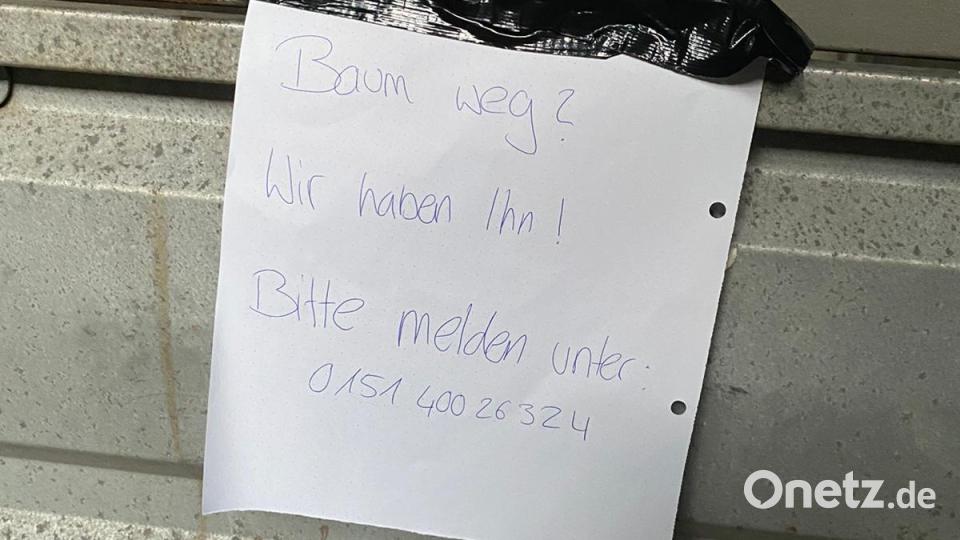 Baum weg?
Wir haben Ihn!
Bitte melden unter:
0151 400 26 324
Onetz.de